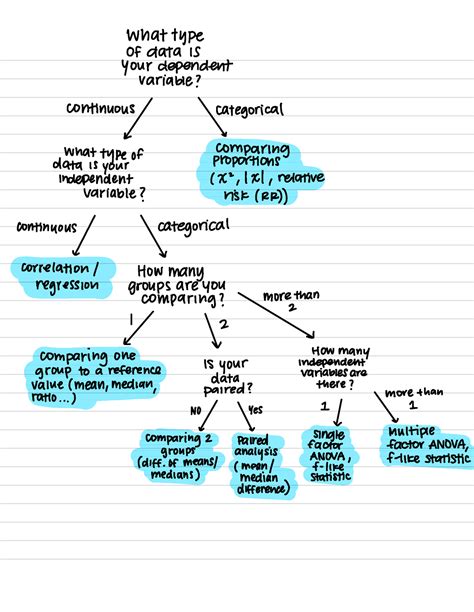 What type
of data is
your dependent
variable?
continuous
categorical
What type of
data is your
independent
variable?
comparing
proportions
(x², |x|, relative
risk (RR))
continuous
categorical
correlation /
regression
How many
groups are you
comparing?
more than
2
1
2
comparing one
group to a reference
value (mean, median,
ratio...)
Is your
data
paired?
How many
independent
variables are
there?
NO
Yes
1
more than
1
comparing 2
groups
(diff. of means/
medians)
Paired
analysis
(mean/
median
difference)
single
factor
ANOVA,
f-like
statistic
multiple
factor ANOVA,
f-like statistic